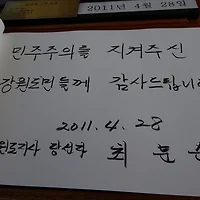 2011년 4월 28일
민주주의를 지켜주신
강원도민들께 감사드립니
2011. 4. 28
원도지사 당선자 최문순